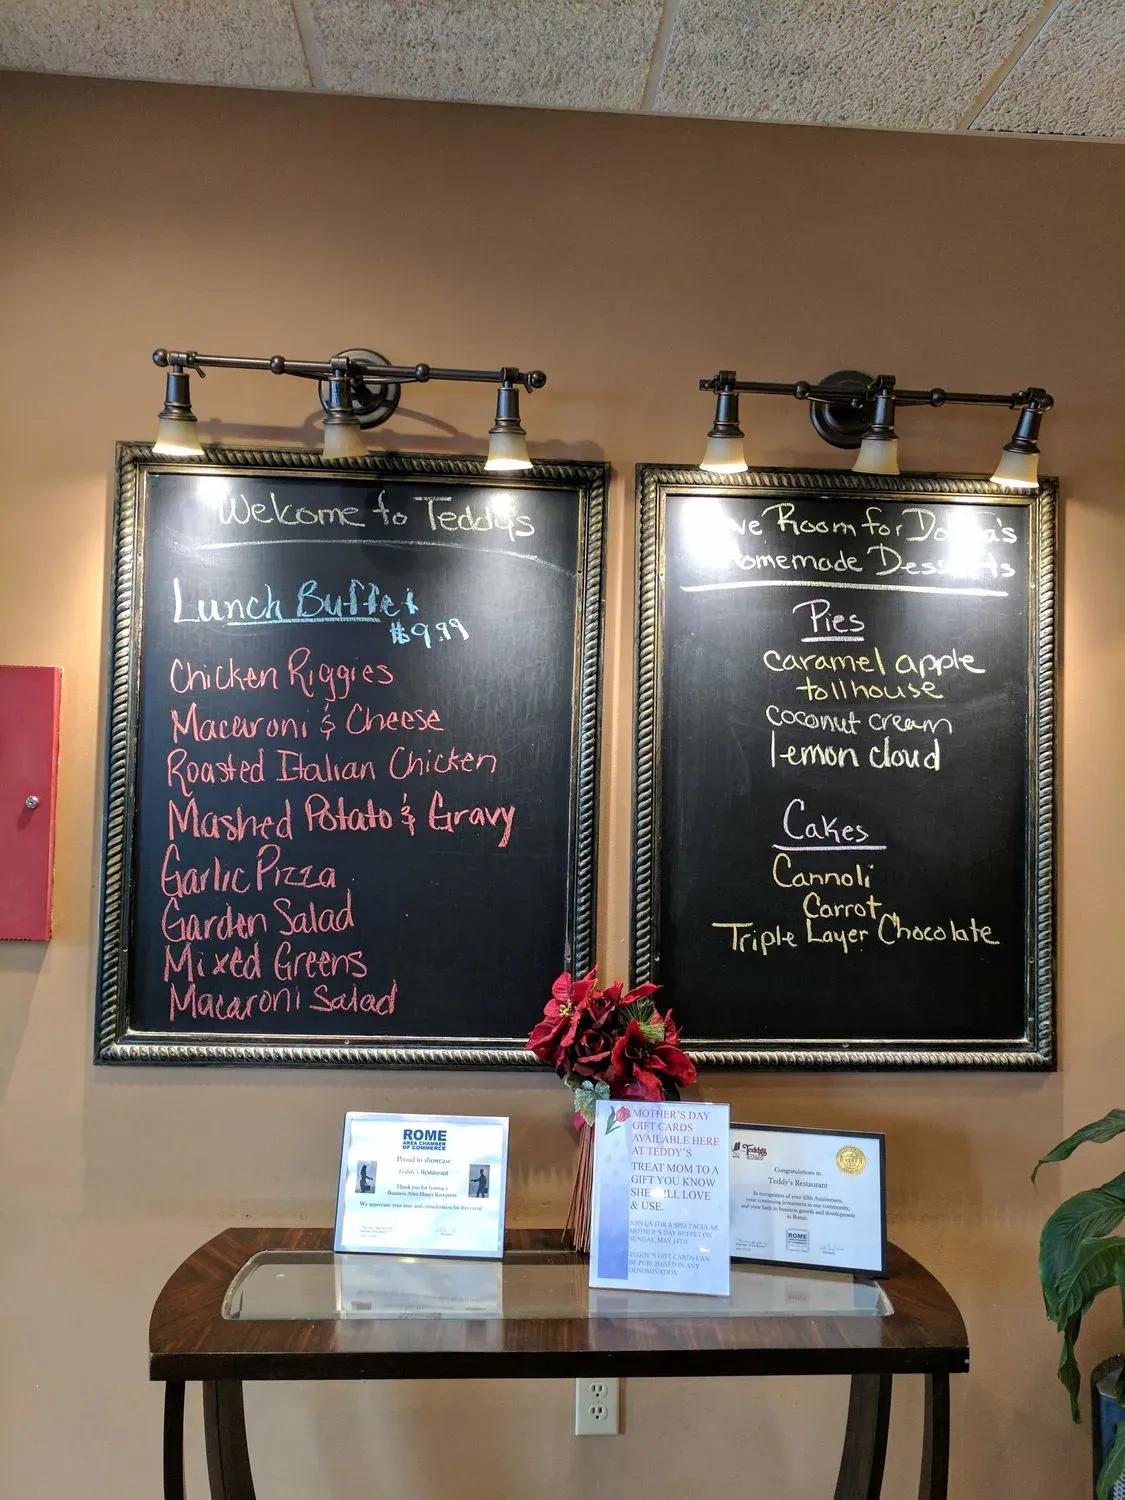 Welcome to Teddy's
Lunch Buffet
$9.99
Chicken Riggies
Macaroni & Cheese
Roasted Italian Chicken
Mashed Potato & Gravy
Garlic Pizza
Garden Salad
Mixed Greens
Macaroni Salad
Room for
Desserts
Pies
caramel apple
tollhouse
coconut cream
lemon cloud
Cakes
Cannoli
Carrot
Triple Layer Chocolate
ROME
AREA CHAMBER
OF COMMERCE
Proud to showcase
Teddy's Restaurant
Thank you for hosting a
Business After Hours Reception
We appreciate your time and consideration for this event!
MOTHER'S DAY
GIFT CARDS
AVAILABLE HERE
AT TEDDY'S
TREAT MOM TO A
GIFT YOU KNOW
SHE WILL LOVE
& USE.
JOIN US FOR A SPECTACULAR
MOTHER'S DAY BUFFET ON
SUNDAY, MAY 14TH
TEDDY'S GIFT CARDS CAN
BE PURCHASED IN ANY
DENOMINATION
Teddy's
Congratulations to
Teddy's Restaurant
In recognition of your Anniversary,
your continuing investment in our community,
and your faith in business growth and development
in Rome.
ROME